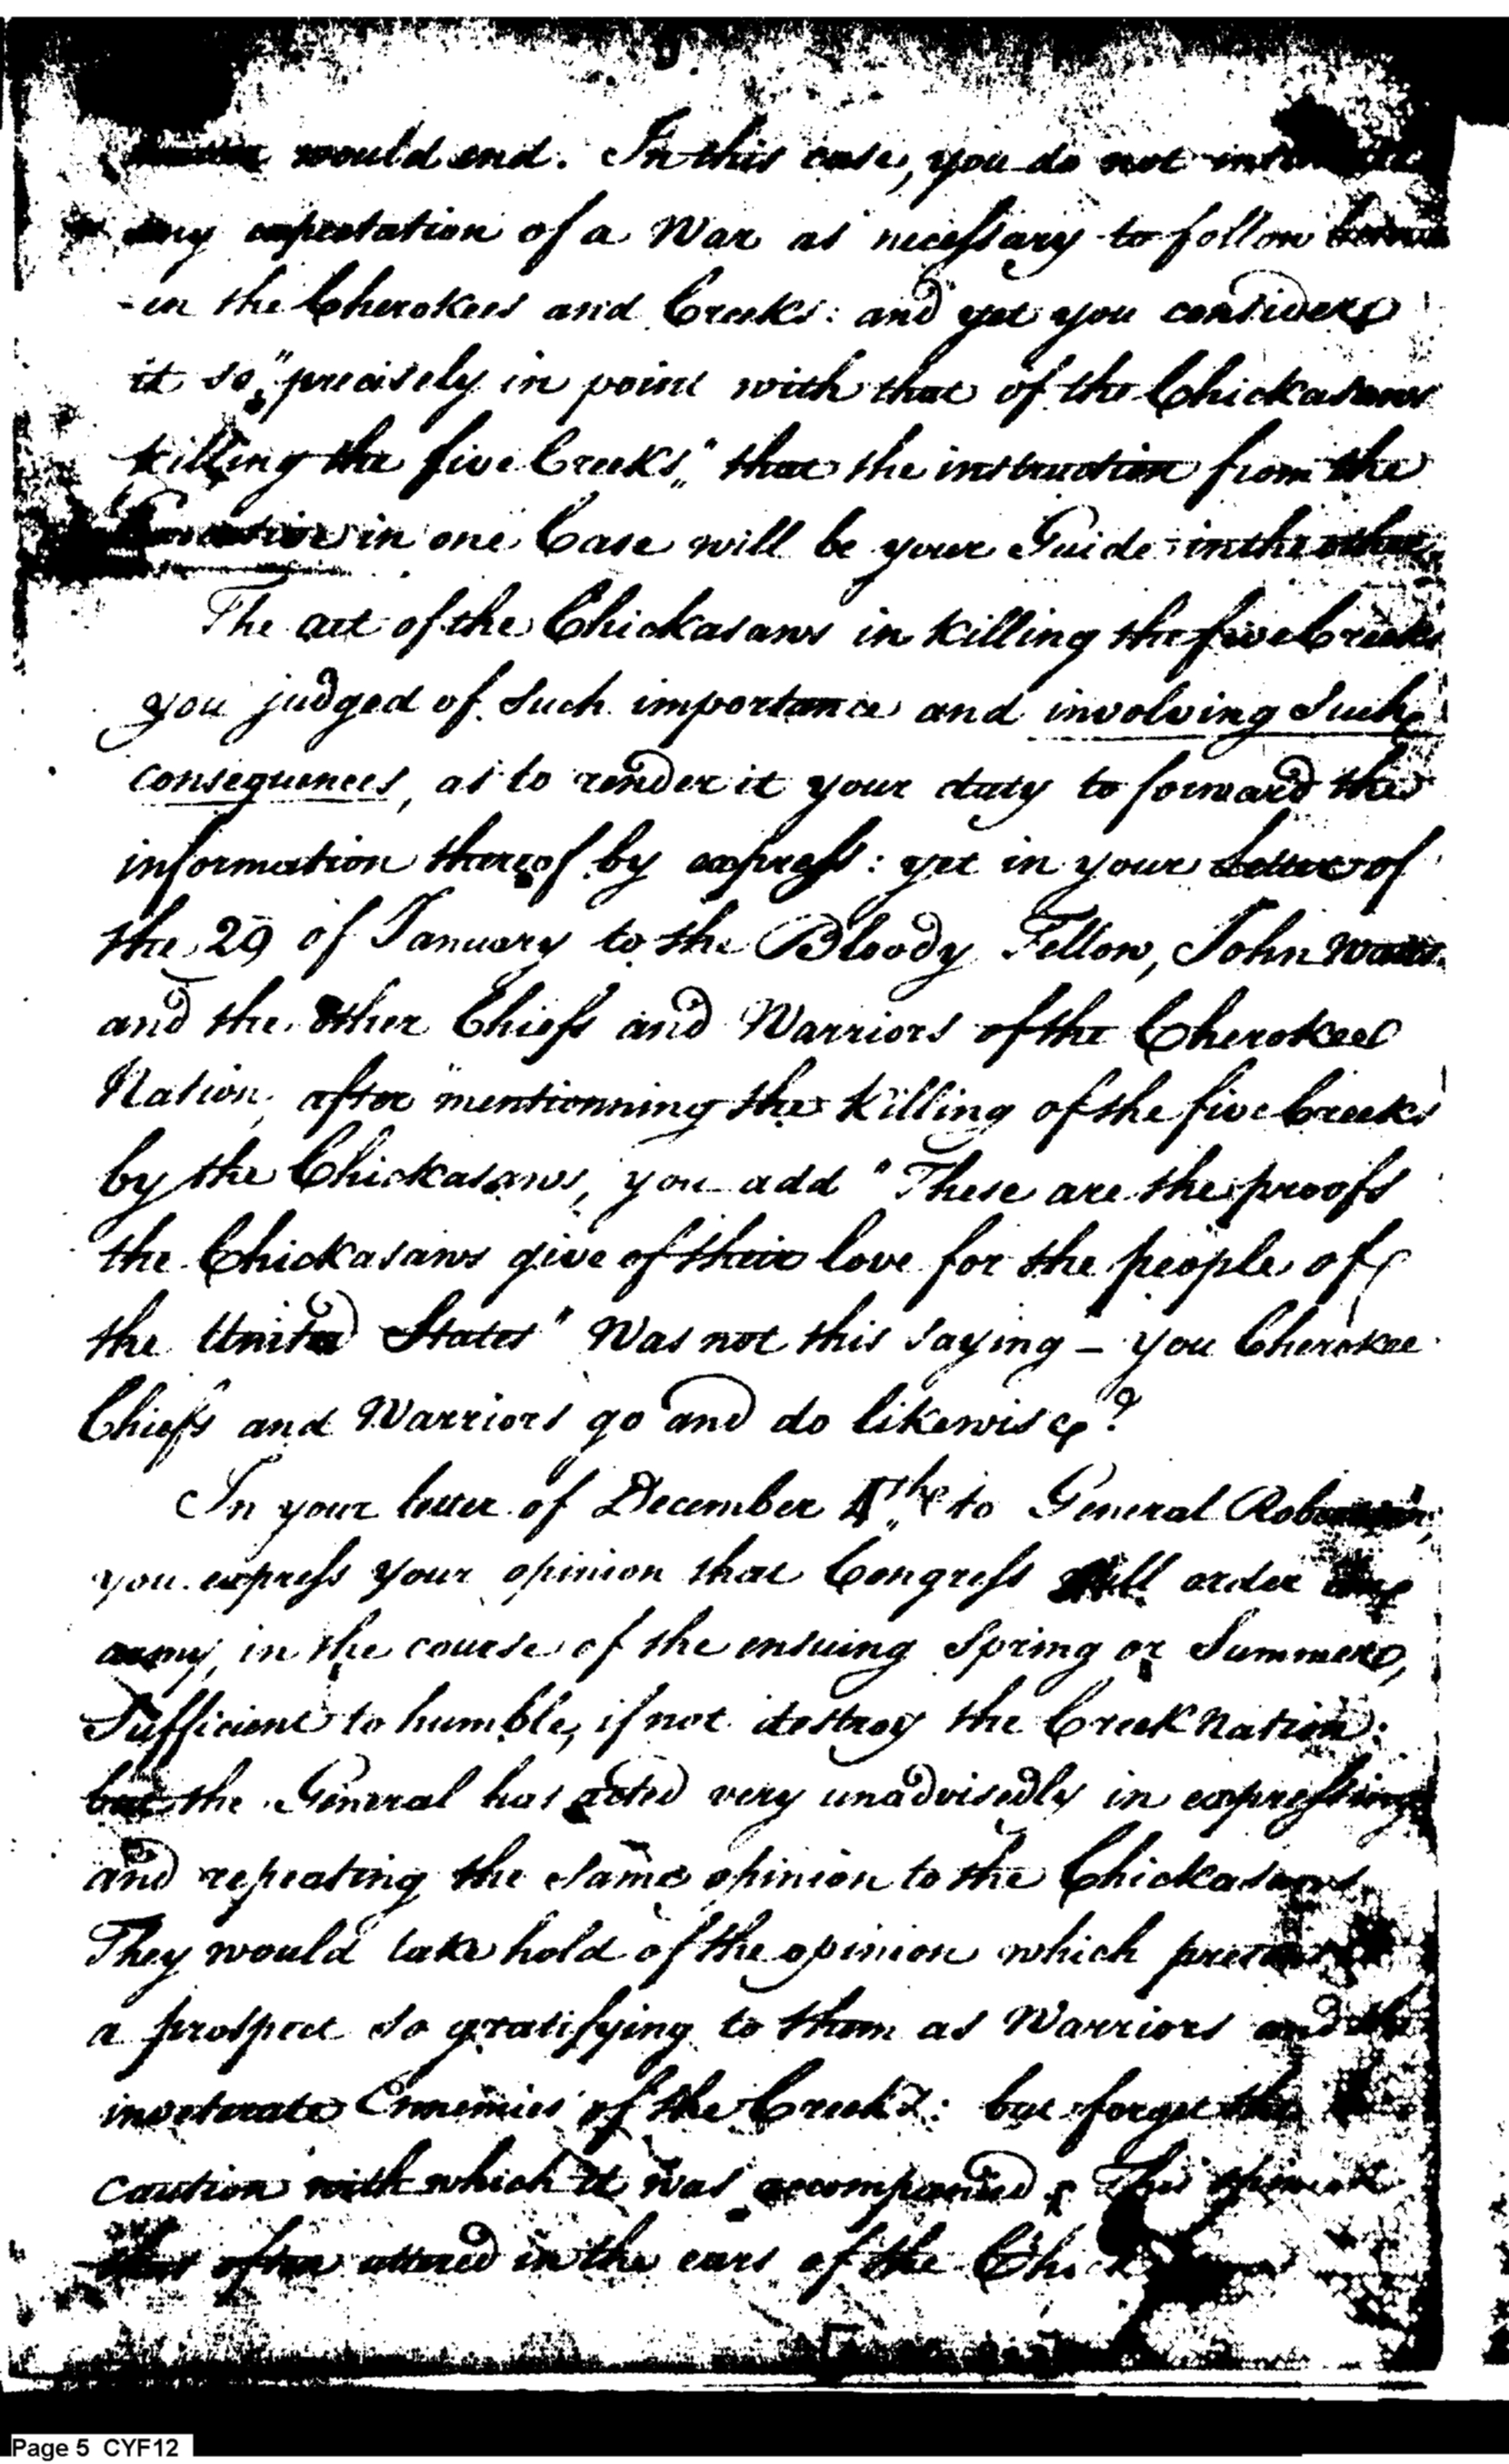 would end. In this case, you do not
any expectation of a War as necessary to follow
-en the Cherokees and Creeks: and yet you consider
it so "precisely in point with that of the Chickasaws
killing the five Creeks," that the instruction from the
in one Case will be your Guide in the other.
The act of the Chickasaws in killing the five Creeks
you judged of such importance and involving such
consequences, as to render it your duty to forward the
information thereof by express: yet in your Letter of
the 29 of January to the Bloody Fellow, John Watts
and the other Chiefs and Warriors of the Cherokee
Nation, after mentionning the killing of the five Creeks
by the Chickasaws, you add "These are the proofs
the Chickasaws give of their love for the people of
the United States" Was not this saying - you Cherokee
Chiefs and Warriors go and do likewise?
In your letter of December 4th to General Robertson,
you express your opinion that Congress will order an
army, in the course of the ensuing Spring or Summer,
Sufficient to humble, if not destroy the Creek Nation:
but the General has acted very unadvisedly in expressing
and repeating the same opinion to the Chickasaws.
They would take hold of the opinion which
a prospect so gratifying to them as Warriors and the
inveterate Ennemies of the Creeks: but forget the
caution with which it was accompanied. This opinion
thus often uttered in the ears of the
Page 5 CYF12